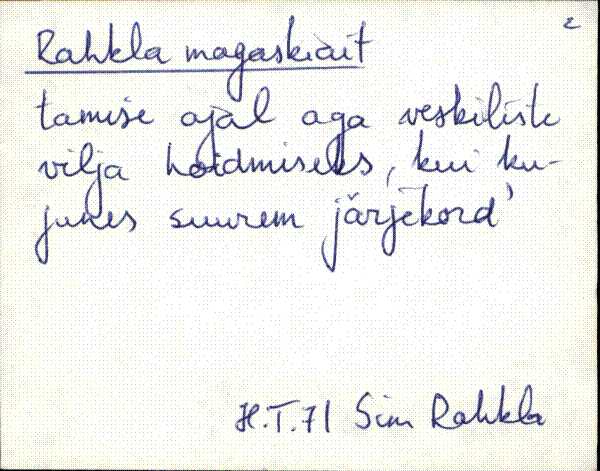 2
Rahkla magaskiait
tamise ajal aga veskiliste
vilja hoidmiseks, kui ku-
junes suurem järjekord'
H.T.71 Sim Rahkla